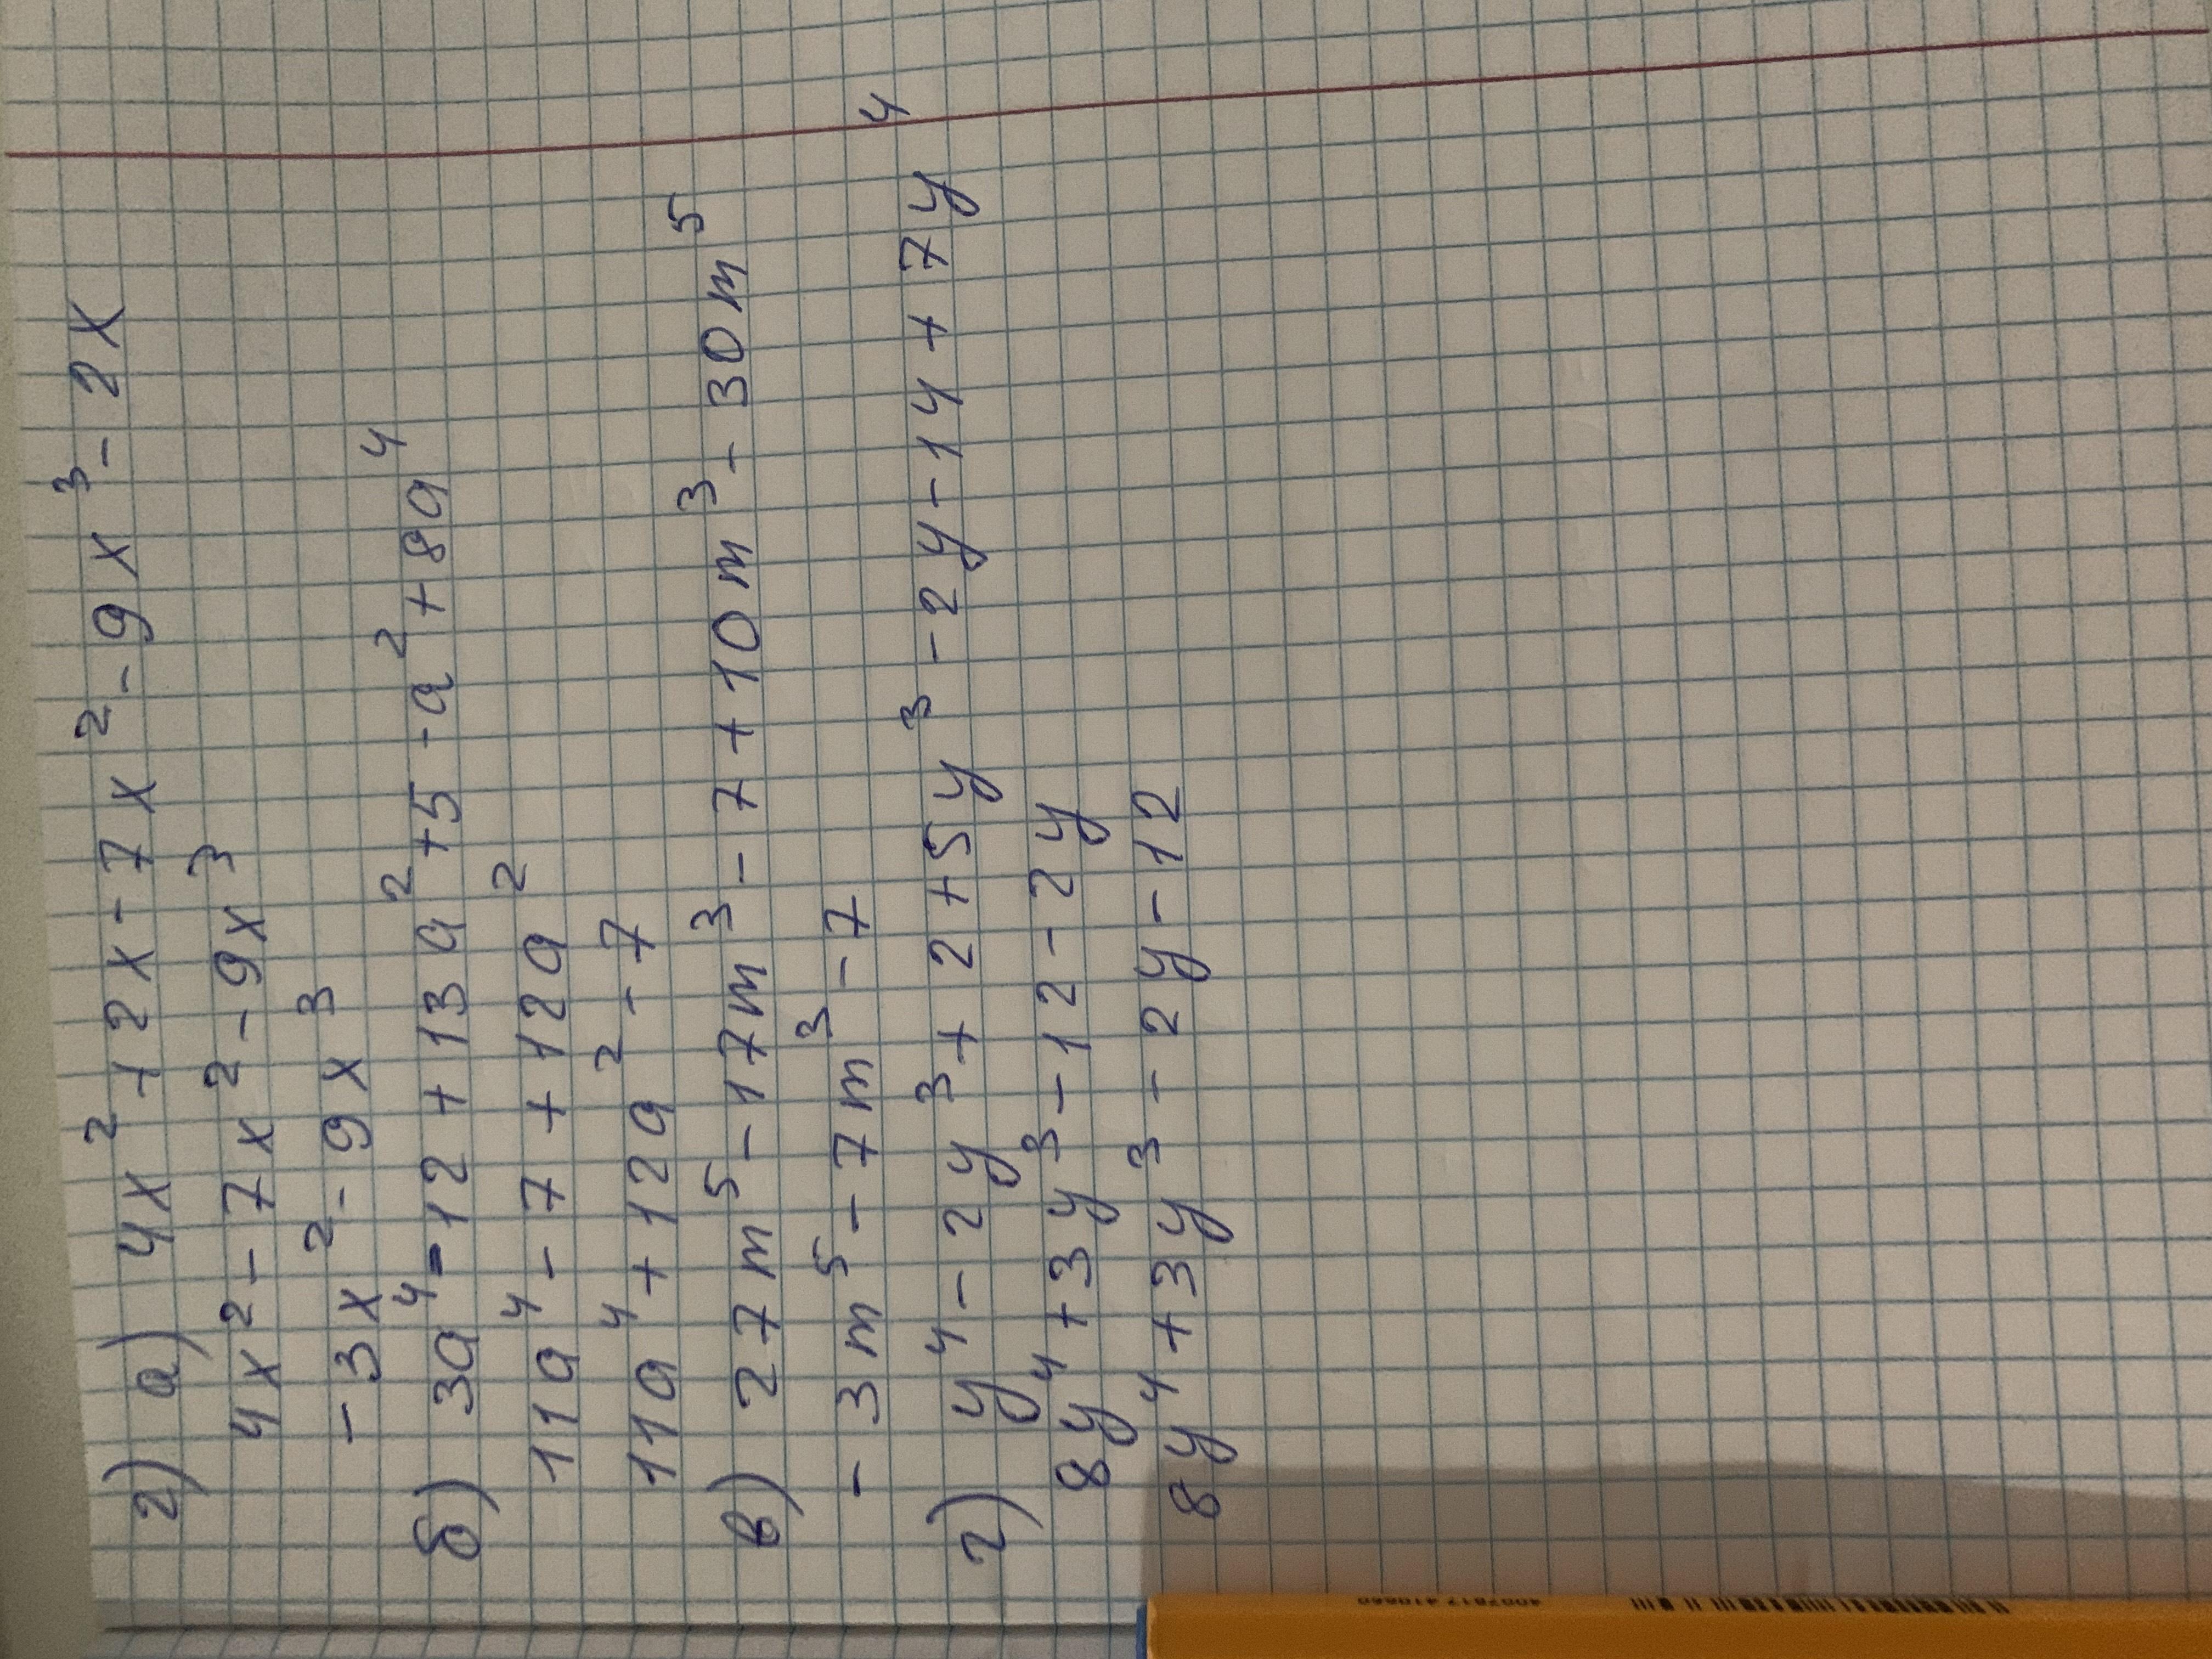 2) а) 4x² + 2x - 7x² - 9x³ - 2x
4x² - 7x² - 9x³
- 3x² - 9x³
б) 3a⁴ - 12 + 13a² + 5 - a² + 8a⁴
11a⁴ - 7 + 12a²
11a⁴ + 12a² - 7
в) 27m⁵ - 17m³ - 7 + 10m³ - 30m⁵
- 3m⁵ - 7m³ - 7
г) y⁴ - 2y³ + 2 + 5y³ - 2y - 14 + 7y⁴
8y⁴ + 3y³ - 12 - 2y
8y⁴ + 3y³ - 2y - 12